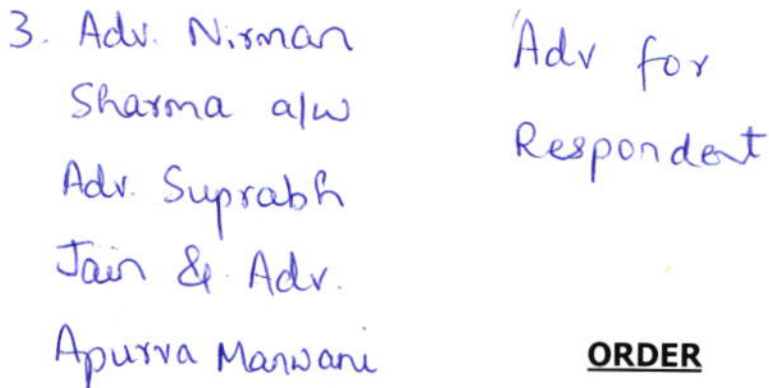 3. Adv. Nirman
Sharma a/w
Adv. Suprabh
Jain & Adv.
Apurva Manwani
Adv for
Respondent
ORDER